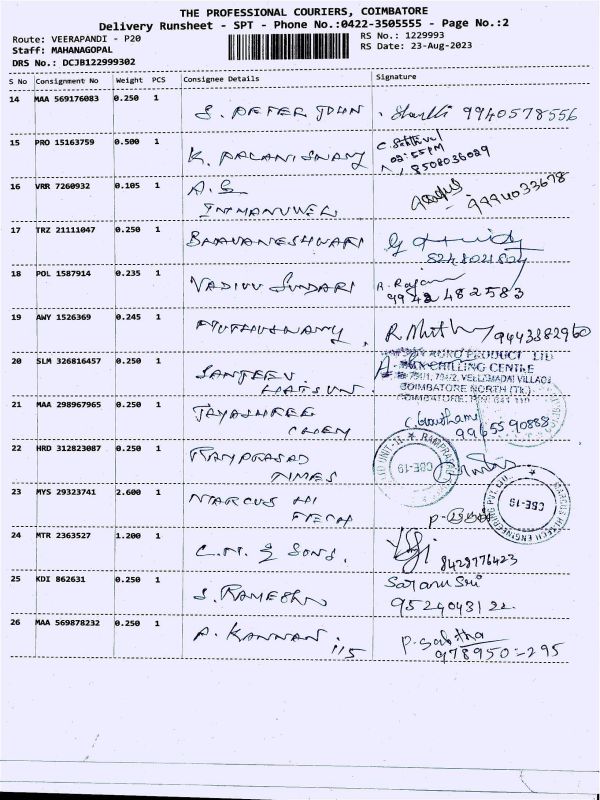 THE PROFESSIONAL COURIERS, COIMBATORE
Delivery Runsheet - SPT - Phone No.:0422-3505555 - Page No.:2
Route: VEERAPANDI - P20
RS No.: 1229993
Staff: MAHANAGOPAL
RS Date: 23-Aug-2023
DRS No.: DCJB122999302
S No Consignment No Weight PCS Consignee Details Signature
14 MAA 569176083 0.250 1 S. PETER JOHN 9940578556
15 PRO 15163759 0.500 1 K. PALANISWAMY C. Sakthivel
03:55PM
8508036089
16 VRR 7260932 0.105 1 A.S 9994033678
IMMANUVEL
17 TRZ 21111047 0.250 1 BHAVANESHWARI
8248021804
18 POL 1587914 0.235 1 VADIVU SUNDARI R. Rajam
9942482583
19 AWY 1526369 0.245 1 MUTHUSWAMY R Muthu 9443382960
20 SLM 326816457 0.250 1 SANJEEV
HATSUN
AGRO PRODUCT LTD
CHILLING CENTRE
VELLAMADAI VILLAGE
COIMBATORE NORTH (TK.)
COIMBATORE, PIN: 641 110
21 MAA 298967965 0.250 1 JAYASHREE C. Gowtham
CHEM 9965590888
22 HRD 312823087 0.250 1 RAMPRASAD
TIMES
UNIT-II
CBE-19
23 MYS 29323741 2.600 1 MARCUS HI
TECH
MARCUS HITECH ENGINEERING PVT. LTD.
CBE-19
24 MTR 2363527 1.200 1 C.M. & SONS.
8428776423
25 KDI 862631 0.250 1 S. RAMESH Saranu Sri
9524043122
26 MAA 569878232 0.250 1 A. KANNAN 115 P. Sabitha
978950-295